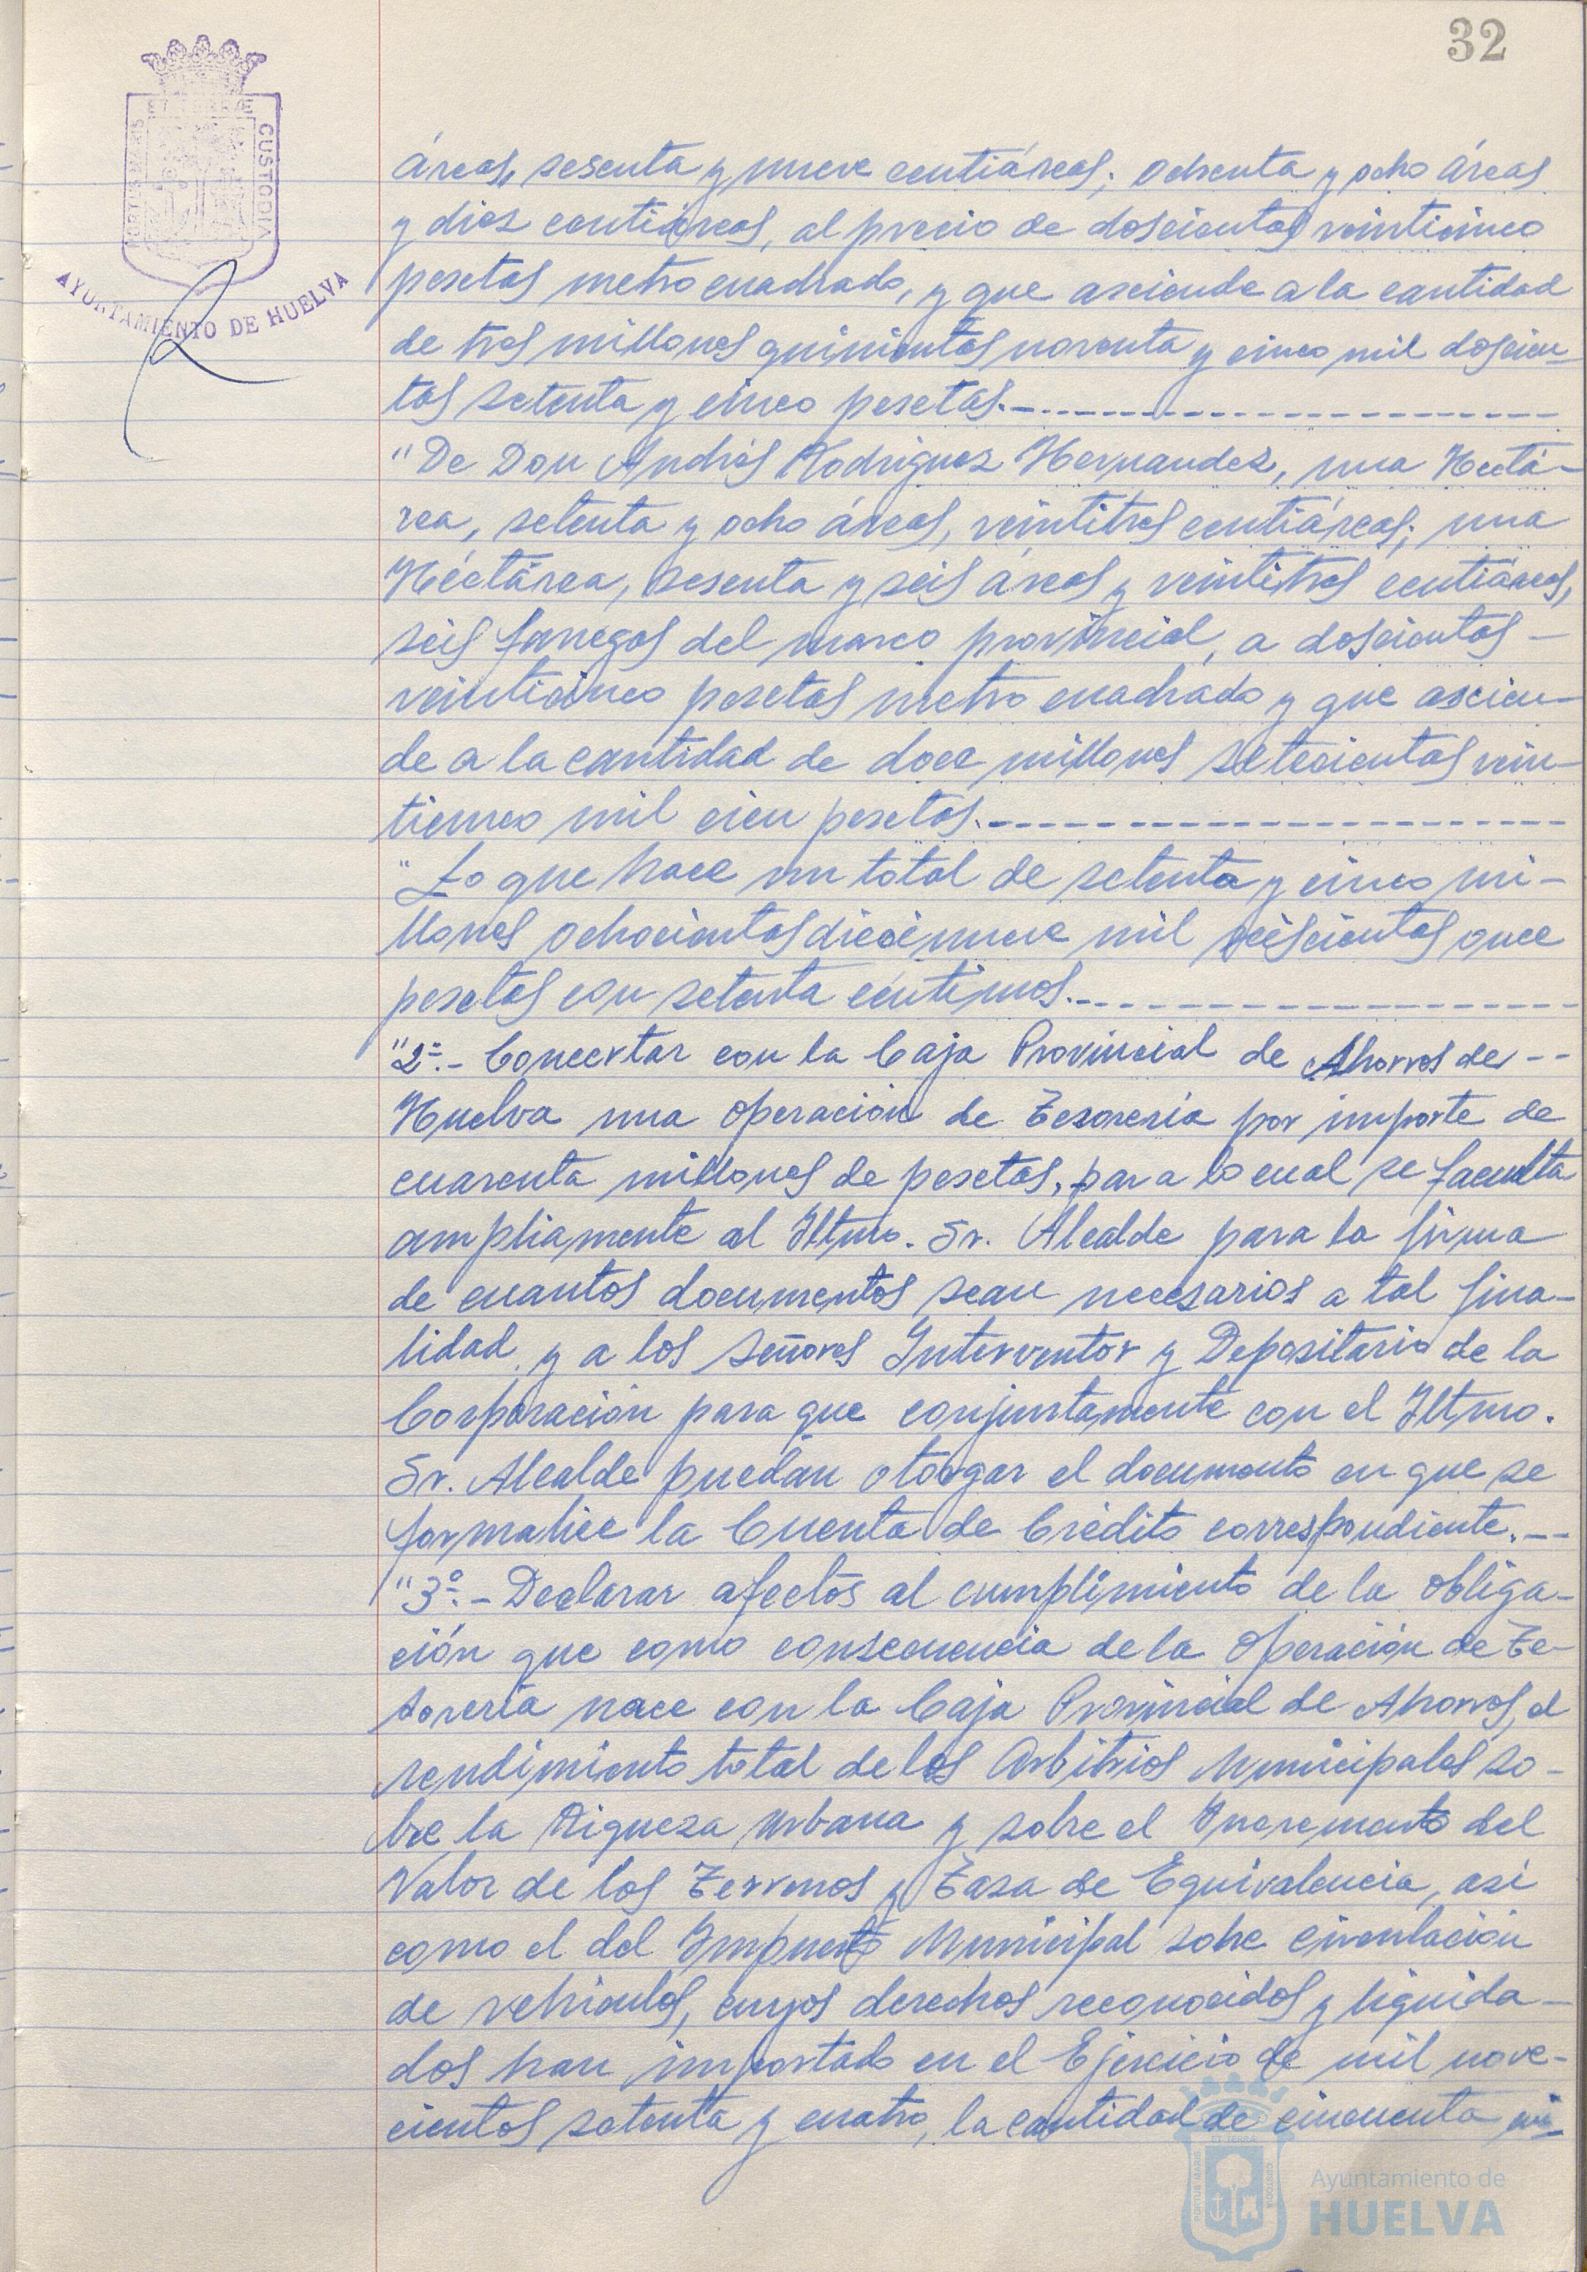 32
PORTUS MARIS ET TERRÆ CUSTODIA
AYUNTAMIENTO DE HUELVA
áreas, sesenta y nueve centiáreas; ochenta y ocho áreas
y diez centiáreas, al precio de doscientas veinticinco
pesetas metro cuadrado, y que asciende a la cantidad
de tres millones quinientas noventa y cinco mil doscien-
tas setenta y cinco pesetas.-------------------
"De Don Andrés Rodríguez Hernandez, una Hectá-
rea, setenta y ocho áreas, veintitres centiáreas; una
Héctárea, sesenta y seis áreas y veintitres centiáreas,
seis fanegas del marco provincial, a doscientas -
veinticinco pesetas metro cuadrado y que ascien-
de a la cantidad de doce millones setecientas vein-
ticinco mil cien pesetas.-------------------
"Lo que hace un total de setenta y cinco mi-
llones ochocientas diecinueve mil seiscientas once
pesetas con setenta céntimos.----------------
"2º.- Concertar con la Caja Provincial de Ahorros de --
Huelva una operación de Tesorería por importe de
cuarenta millones de pesetas, para lo cual se faculta
ampliamente al Iltmo. Sr. Alcalde para la firma
de cuantos documentos sean necesarios a tal fina-
lidad, y a los señores Interventor y Depositario de la
Corporación para que conjuntamente con el Iltmo.
Sr. Alcalde puedan otorgar el documento en que se
formalice la Cuenta de Crédito correspondiente.--
"3º.- Declarar afectos al cumplimiento de la obliga-
ción que como consecuencia de la Operación de Te-
sorería nace con la Caja Provincial de Ahorros, el
rendimiento total de los Arbitrios Municipales so-
bre la Riqueza Urbana y sobre el Incremento del
Valor de los Terrenos y Tasa de Equivalencia, así
como el del Impuesto Municipal sobre circulación
de vehículos, cuyos derechos reconocidos y liquida-
dos han importado en el Ejercicio de mil nove-
cientos setenta y cuatro, la cantidad de cincuenta mi-
PORTUS MARIS ET TERRÆ CUSTODIA
Ayuntamiento de
HUELVA